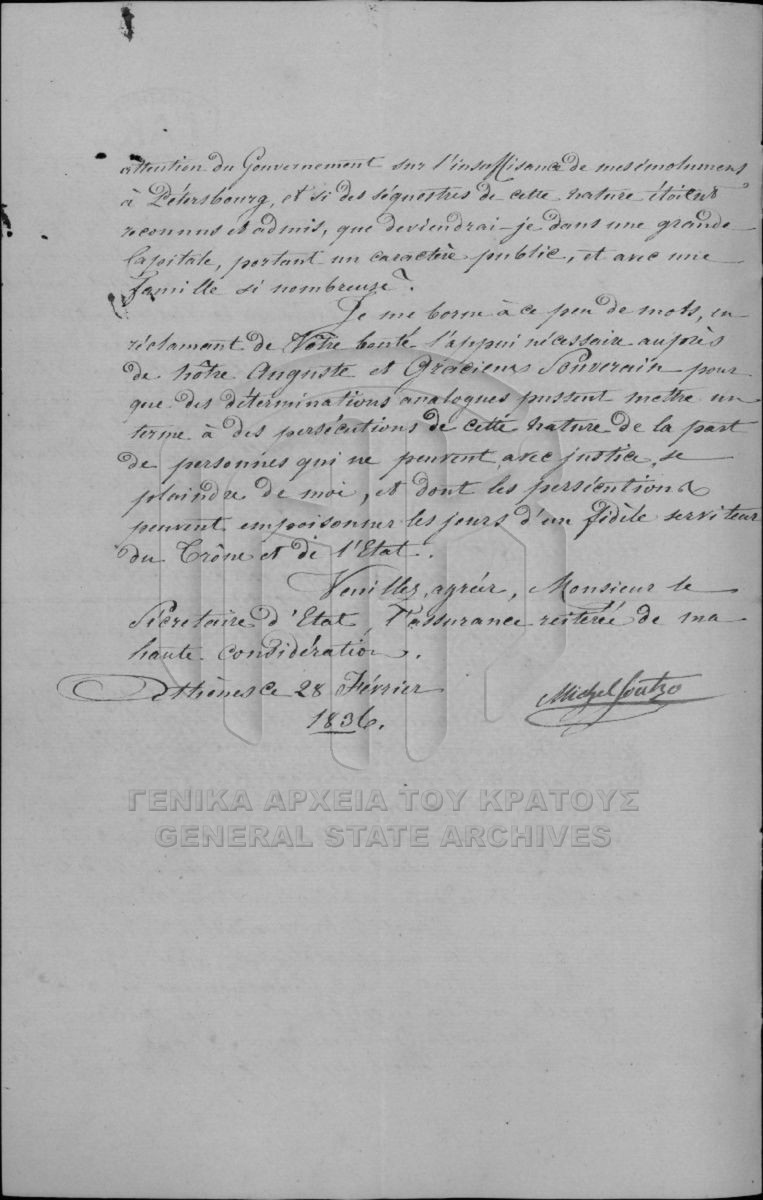 attention du Gouvernement sur l'insuffisance de mes émolumens
à Pétersbourg, et si des séquestres de cette nature étoient
reconnus et admis, que deviendrai-je dans une grande
Capitale, portant un caractère public, et avec une
famille si nombreuse?
Je me borne à ce peu de mots, en
réclamant de Vôtre bonté l'appui nécessaire auprès
de nôtre Auguste et Gracieux Souverain pour
que des déterminations analogues pussent mettre un
terme à des persécutions de cette nature de la part
de personnes qui ne peuvent, avec justice, se
plaindre de moi, et dont les persécutions
peuvent empoisonner les jours d'un fidèle serviteur
du Trône et de l'Etat.
Veuillez, agréer, Monsieur le
Sécretaire d'Etat, l'assurance reiterée de ma
haute considération.
Athènes ce 28 Février
1836.
Michel Soutzo
ΓΕΝΙΚΑ ΑΡΧΕΙΑ ΤΟΥ ΚΡΑΤΟΥΣ
GENERAL STATE ARCHIVES